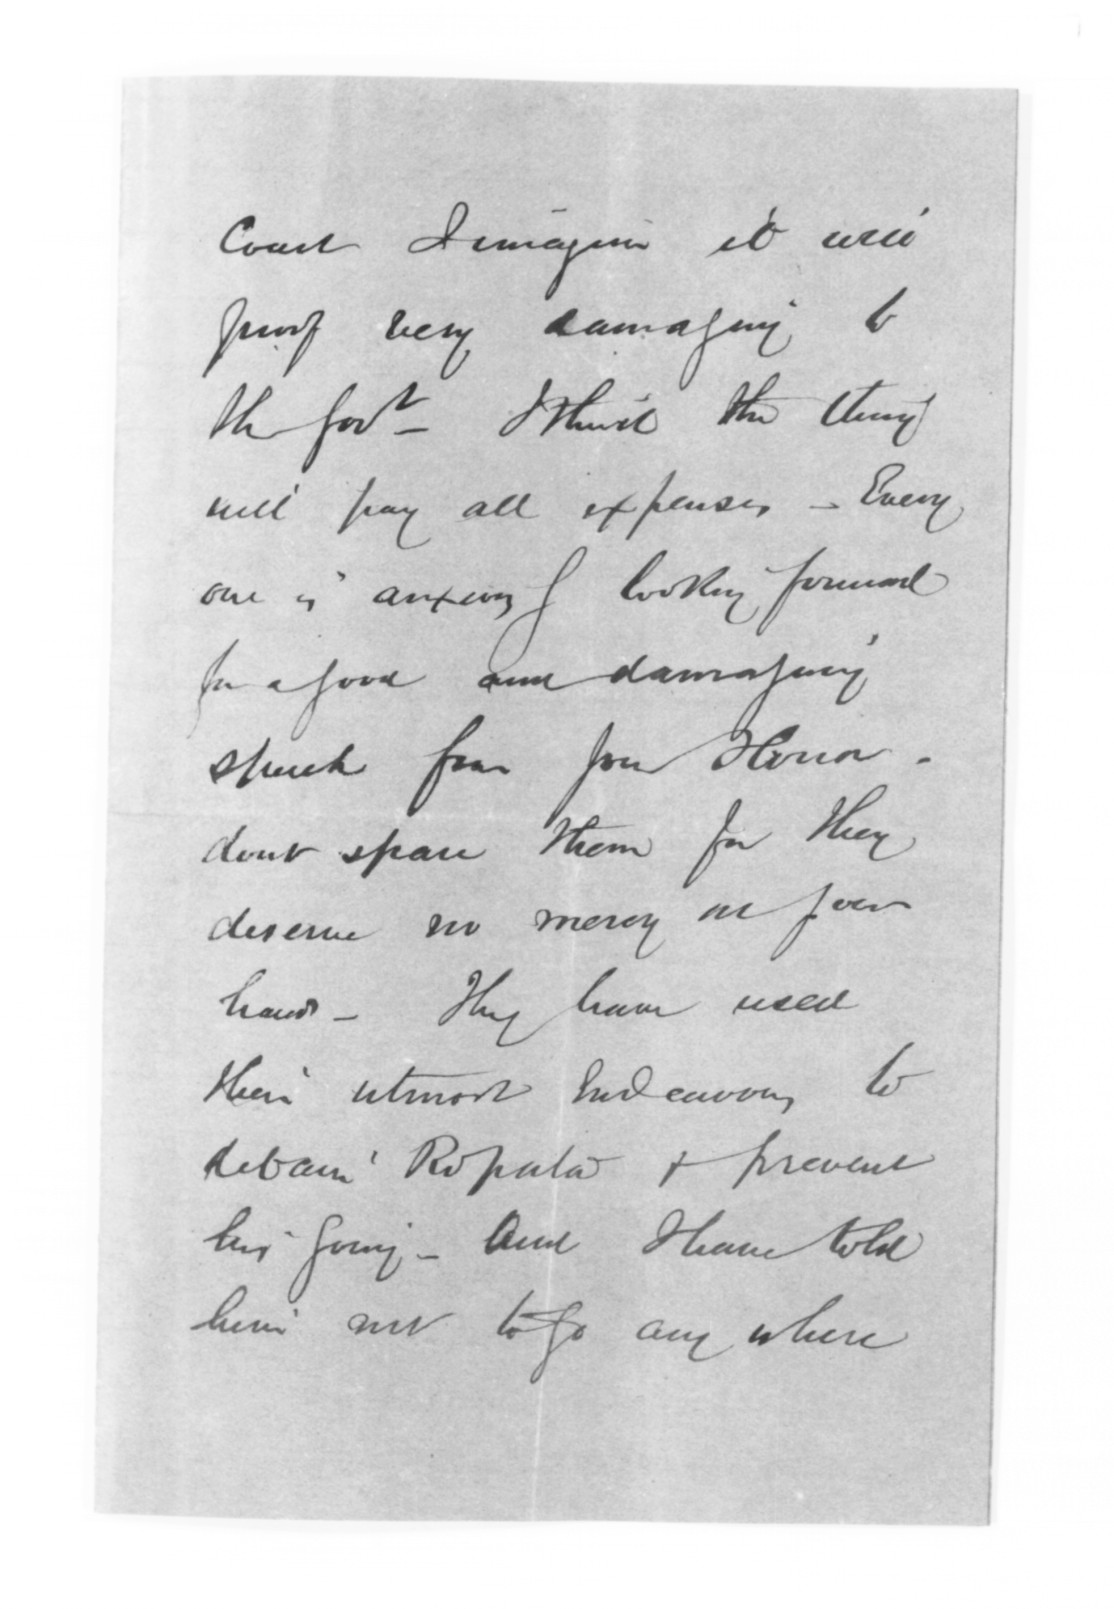 Coast I imagine it will
proof very damaging to
the Govt - I think the thing
will pay all expenses - Every
one is anxiously looking forward
for a good and damaging
speech from your Honor -
dont spare them for they
deserve no mercy at your
hands - They have used
their utmost Endeavours to
detain Ropata & prevent
his going - And I have told
him not to go any where